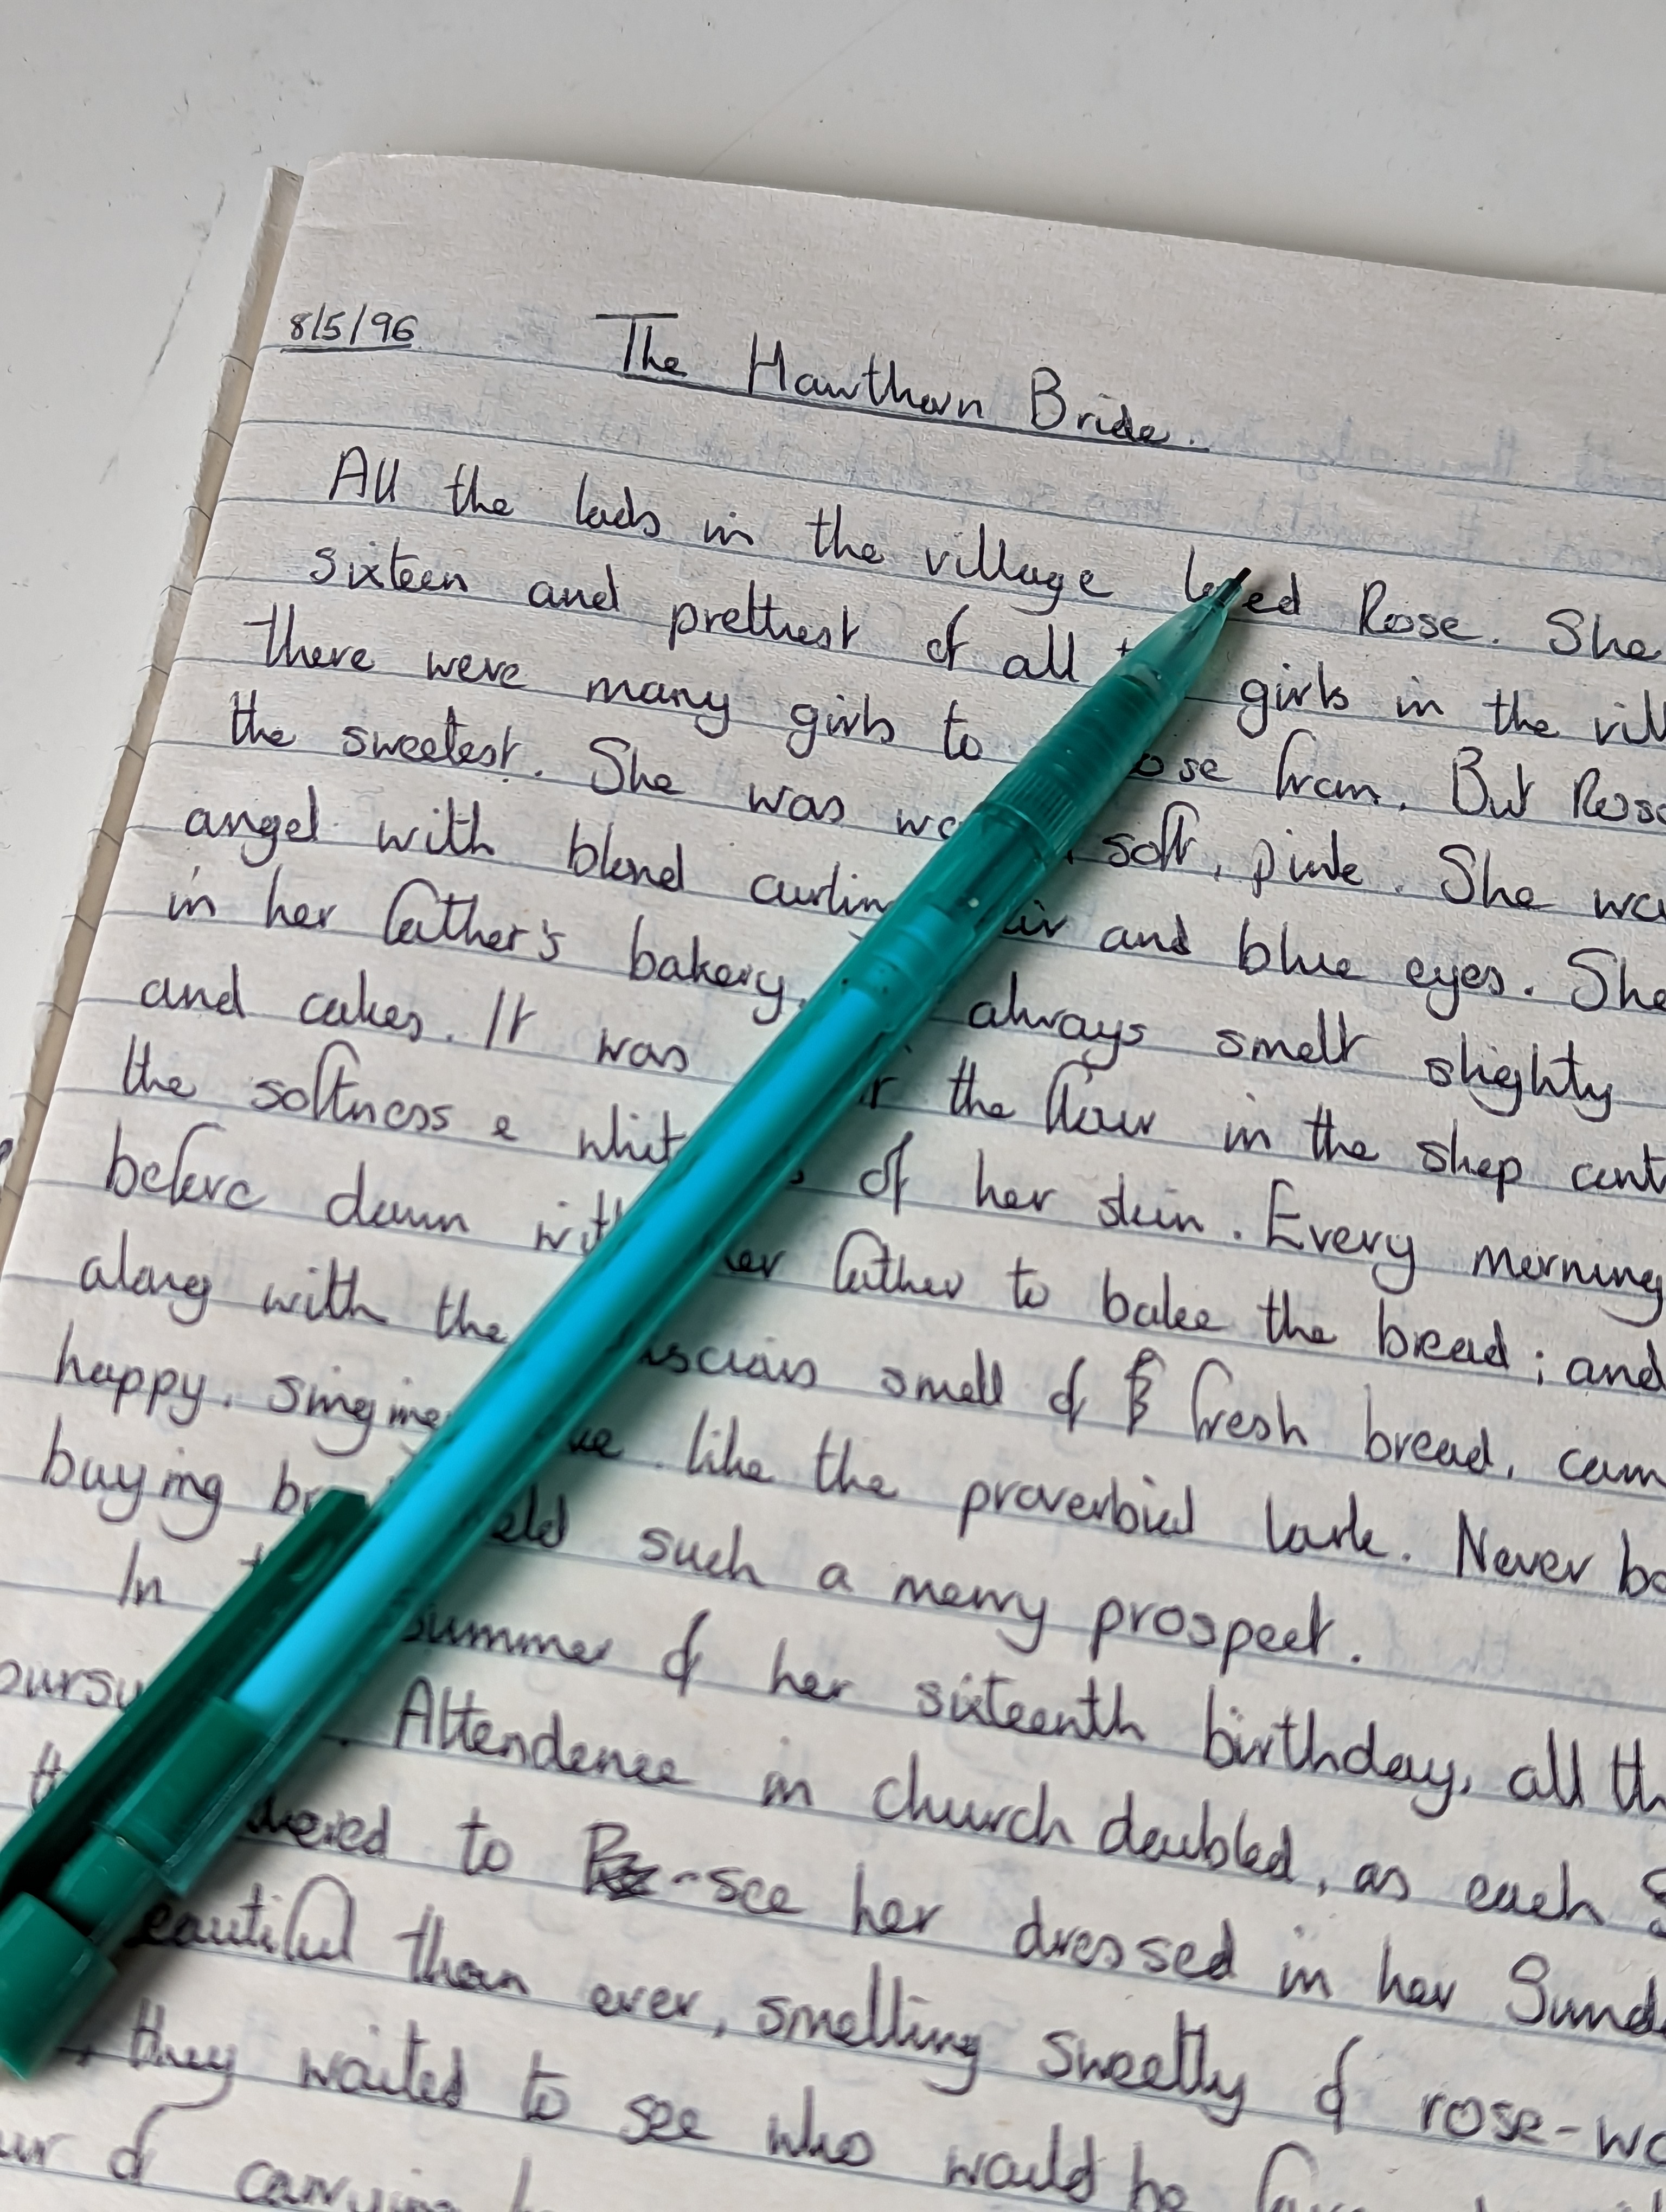 8/5/96 The Hawthorn Bride.
All the lads in the village loved Rose. She
sixteen and prettiest of all girls in the vill
there were many girls to from. But Rose
the sweetest. She was soft, pink. She wa
angel with blond and blue eyes. She
in her father's bakery. always smelt slighty
and cakes. It was the flour in the shop
the softness & of her skin. Every morning
before dawn father to bake the bread; and
along with the smell of fresh bread, cam
happy, singing like the proverbial lark. Never
buying such a merry prospect.
In summer of her sixteenth birthday, all th
Attendence in church doubled, as each S
to see her dressed in her Sund
eautiful than ever, smelling sweetly of rose-wa
they waited to see who would be
of carrying